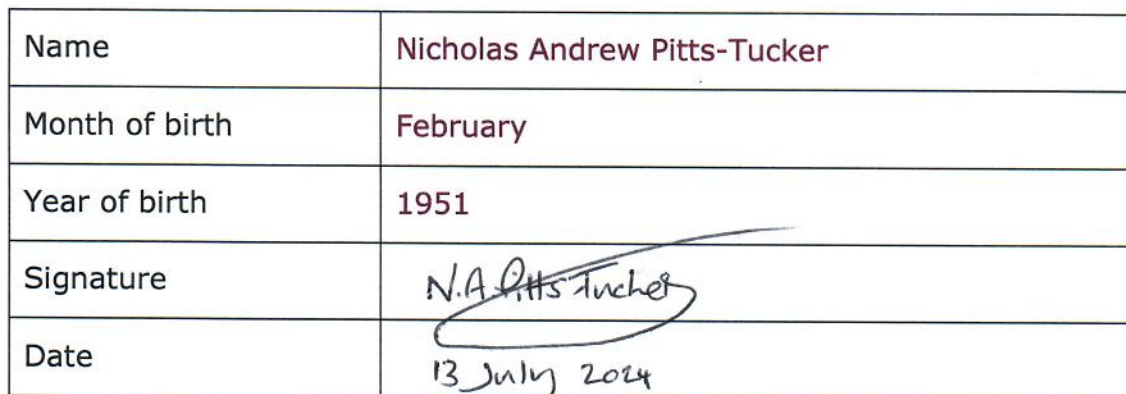 Name Nicholas Andrew Pitts-Tucker
Month of birth February
Year of birth 1951
Signature N.A. Pitts Tucker
Date 13 July 2024